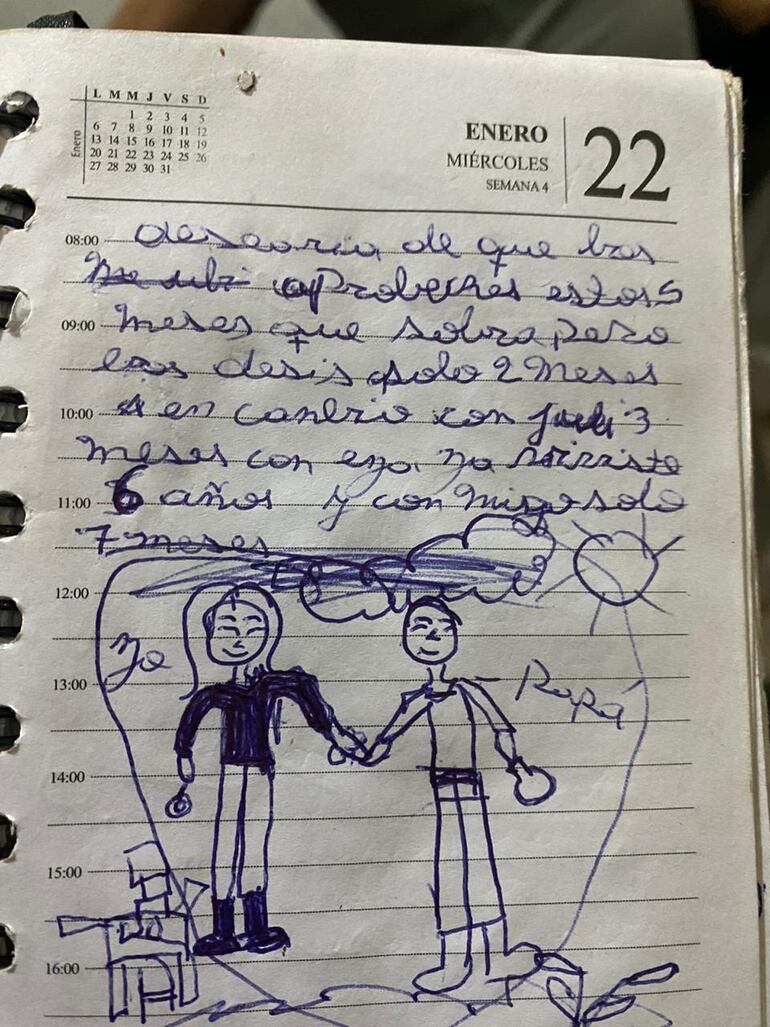 L M M J V S D
Enero
1 2 3 4 5
6 7 8 9 10 11 12
13 14 15 16 17 18 19
20 21 22 23 24 25 26
27 28 29 30 31
ENERO
MIÉRCOLES
SEMANA 4
22
08:00 desearia de que
aprobeches estos 5
09:00 meses que sobra pero
desis solo 2 meses
10:00 en canbio con 3
meses con eya ya
11:00 6 años y con migo solo
7 meses
12:00
yo
13:00
Papá
14:00
15:00
16:00